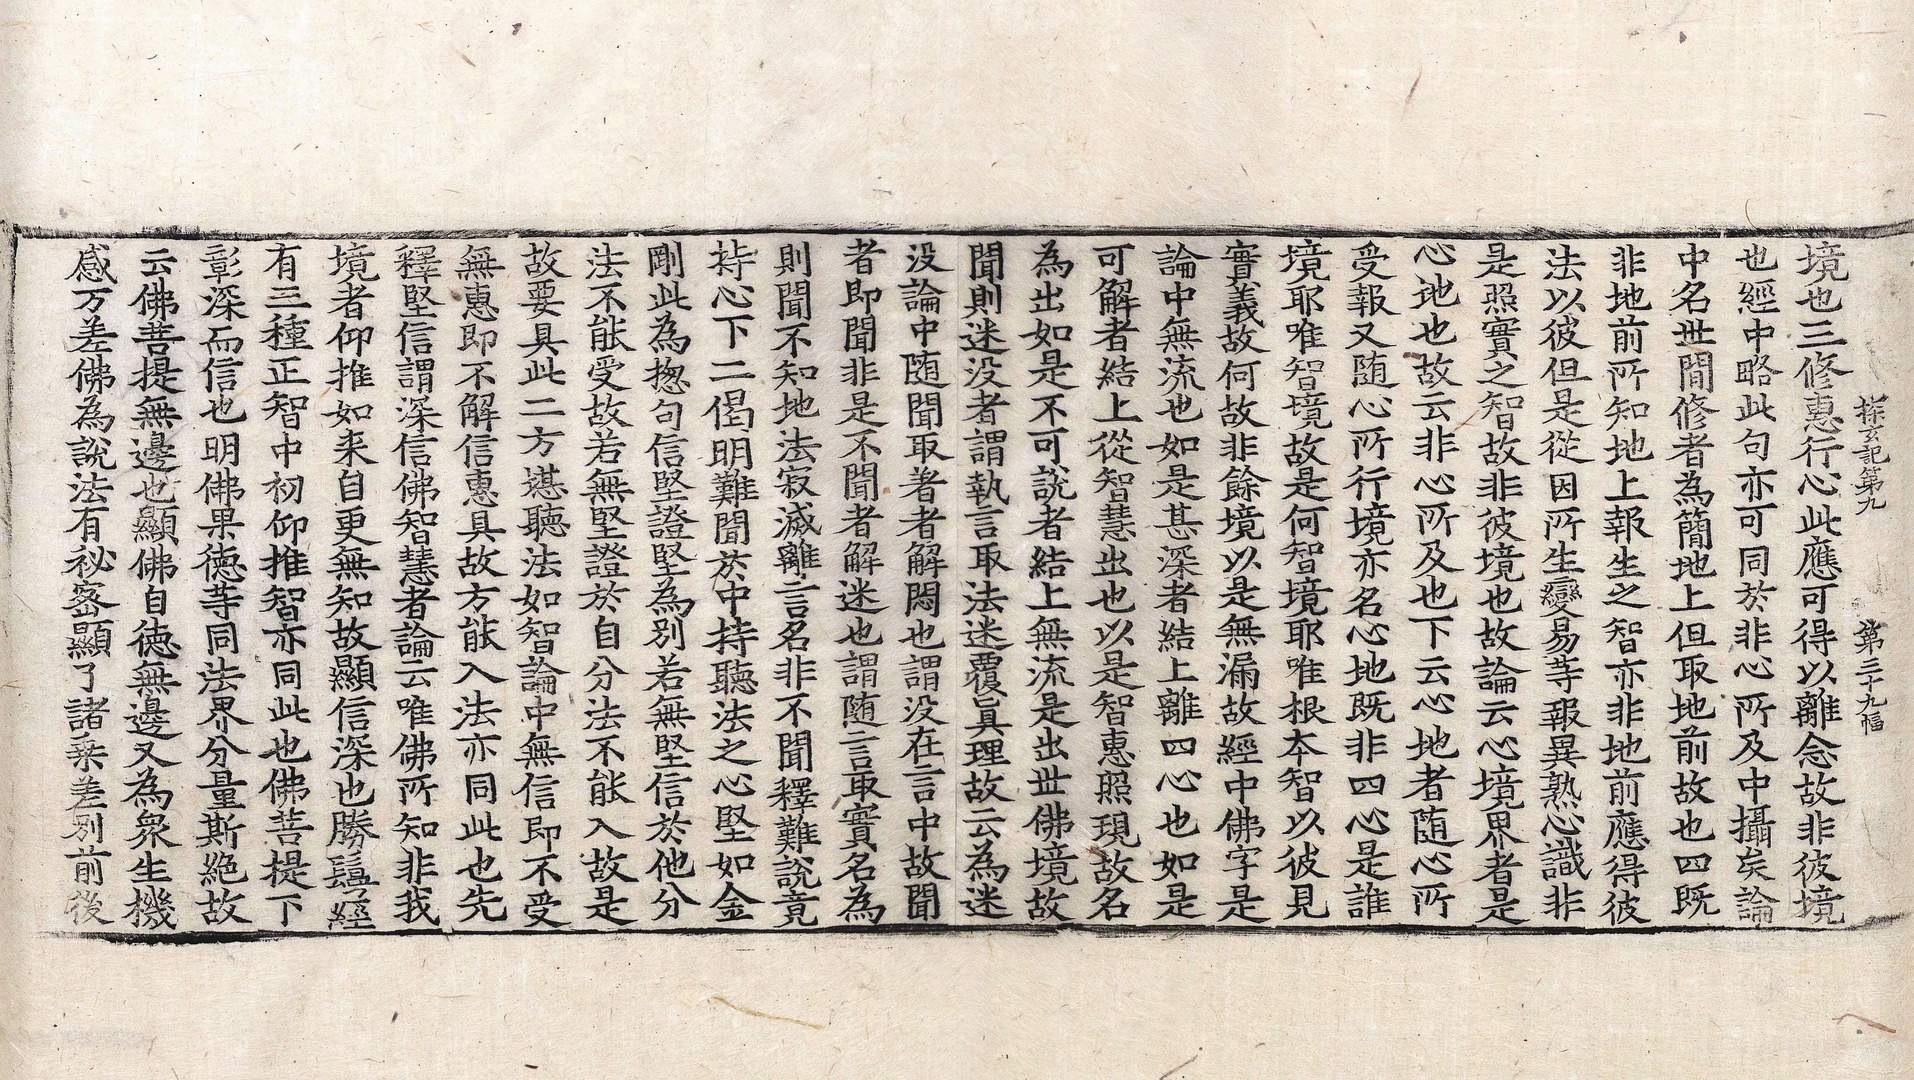 探玄記第九　第三十九幅
境也三修惠行心此應可得以離念故非彼境
也經中略此句亦可同於非心所及中攝矣論
中名世間修者為簡地上但取地前故也四既
非地前所知地上報生之智亦非地前應得彼
法以彼但是從因所生變易等報異熟心識非
是照實之智故非彼境也故論云心境界者是
心地也故云非心所及也下云心地者随心所
受報又随心所行境亦名心地既非四心是誰
境耶唯智境故是何智境耶唯根本智以彼見
實義故何故非餘境以是無漏故經中佛字是
論中無流也如是甚深者結上離四心也如是
可解者結上從智慧出也以是智惠照現故名
為出如是不可說者結上無流是出世佛境故
聞則迷没者謂執言取法迷覆眞理故云為迷
没論中随聞取著者解悶也謂没在言中故聞
者即聞非是不聞者解迷也謂随言取實名為
則聞不知地法寂滅離言名非不聞釋難說竟
持心下二偈明難聞於中持聽法之心堅如金
剛此為揔句信堅證堅為別若無堅信於他分
法不能受故若無堅證於自分法不能入故是
故要具此二方堪聽法如智論中無信即不受
無惠即不解信惠具故方能入法亦同此也先
釋堅信謂深信佛智慧者論云唯佛所知非我
境者仰推如来自更無知故顯信深也勝鬘經
有三種正智中初仰推智亦同此也佛菩提下
彰深而信也明佛果徳等同法界分量斯絶故
云佛菩提無邊也顯佛自徳無邊又為衆生機
感万差佛為說法有秘密顯了諸乗差别前後